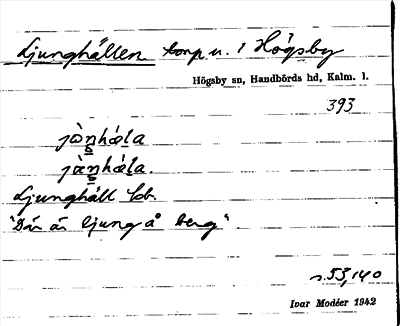 Ljunghällen torp u. i Högsby
Högsby sn, Handbörds hd, Kalm. l.
393
jòŋhǽla
jàŋhǽla.
Ljunghäll
"Där är ljung å berg".
s. 53, 140
Ivar Modéer 1942